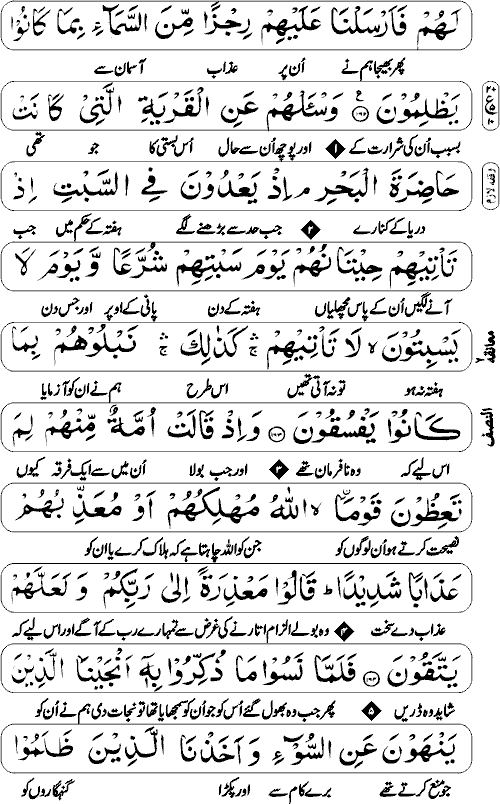 لَهُمْ فَاَرْسَلْنَا عَلَيْهِمْ رِجْزًا مِّنَ السَّمَآءِ بِمَا كَانُوْا
پھر بھیجا ہم نے اُن پر عذاب آسمان سے
يَظْلِمُوْنَ ۝ وَسْـَٔلْهُمْ عَنِ الْقَرْيَةِ الَّتِيْ كَانَتْ
بسبب اُن کی شرارت کے ۱ اور پوچھ اُن سے حال اُس بستی کا جو تھی
حَاضِرَةَ الْبَحْرِ ۘ اِذْ يَعْدُوْنَ فِي السَّبْتِ اِذْ
وقف لازم
دریا کے کنارے ۲ جب حد سے بڑھنے لگے ہفتہ کے حکم میں جب
تَاْتِيْهِمْ حِيْتَانُهُمْ يَوْمَ سَبْتِهِمْ شُرَّعًا وَّ يَوْمَ لَا
آنے لگیں اُن کے پاس مچھلیاں ہفتہ کے دن پانی کے اوپر اور جس دن
يَسْبِتُوْنَ ۙ لَا تَاْتِيْهِمْ ۛ كَذٰلِكَ ۛ نَبْلُوْهُمْ بِمَا
معانقه ۷
ہفتہ نہ ہو تو نہ آتی تھیں اس طرح ہم نے ان کو آزمایا
كَانُوْا يَفْسُقُوْنَ ۝ وَاِذْ قَالَتْ اُمَّةٌ مِّنْهُمْ لِمَ
النصف
اس لیے کہ وہ نافرمان تھے ۳ اور جب بولا اُن میں سے ایک فرقہ کیوں
تَعِظُوْنَ قَوْمًا ۙ اللّٰهُ مُهْلِكُهُمْ اَوْ مُعَذِّبُهُمْ
نصیحت کرتے ہو اُن لوگوں کو جن کو اللہ چاہتا ہے کہ ہلاک کرے یا ان کو
عَذَابًا شَدِيْدًا ؕ قَالُوْا مَعْذِرَةً اِلٰى رَبِّكُمْ وَ لَعَلَّهُمْ
عذاب دے سخت ۴ وہ بولے الزام اتارنے کی غرض سے تمہارے رب کے آگے اور اس لیے کہ
يَتَّقُوْنَ ۝ فَلَمَّا نَسُوْا مَا ذُكِّرُوْا بِهٖۤ اَنْجَيْنَا الَّذِيْنَ
شاید وہ ڈریں ۵ پھر جب وہ بھول گئے اُس کو جو اُن کو سمجھایا تھا تو نجات دی ہم نے اُن کو
يَنْهَوْنَ عَنِ السُّوْٓءِ وَ اَخَذْنَا الَّذِيْنَ ظَلَمُوْا
جو منع کرتے تھے برے کام سے اور پکڑا گنہگاروں کو